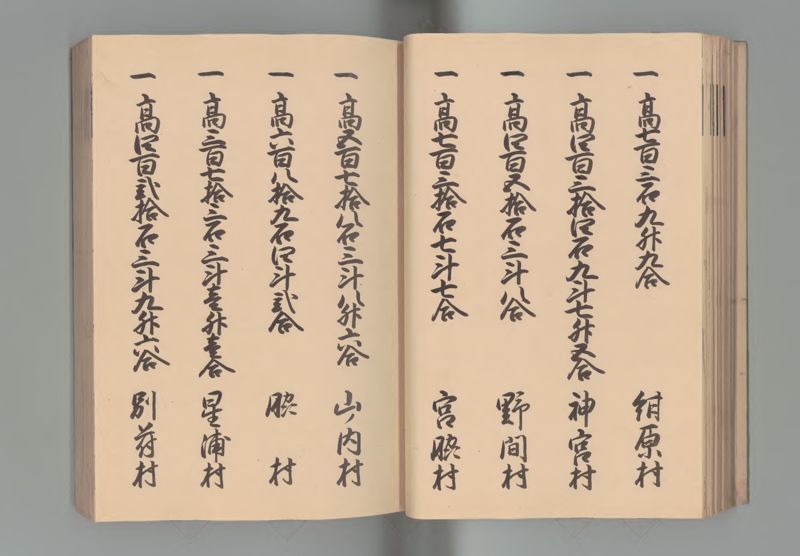 一 高七百三石九升九合 紺原村
一 高四百三拾四石九斗七升五合 神宮村
一 高四百五拾石三斗八合 野間村
一 高七百三拾石七斗七合 宮脇村
一 高五百七拾八石三斗八升六合 山内村
一 高六百八拾九石四斗弐合 脇村
一 高三百七拾三石三斗壱升壱合 星浦村
一 高四百弐拾石三斗九升六合 別府村